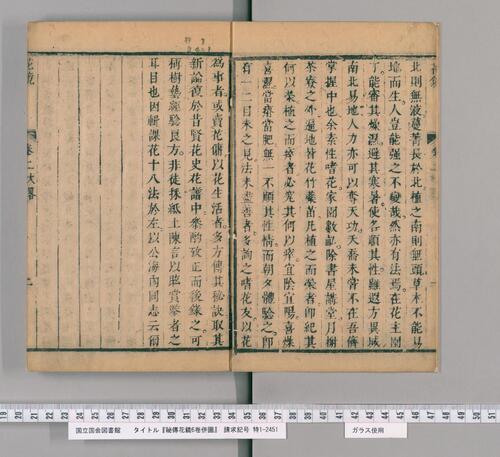 北則無液蔓菁長於北植之南則無頭草木不能易
地而生人豈能强之不變哉然亦有法焉在花主園
丁能審其燥濕避其寒暑使各順其性雖遐方異域
南北易地人力亦可以奪天功夭喬未嘗不在吾儕
掌握中也余素性嗜花家園數畝除書屋講堂月榭
茶寮之外遍地皆花竹藥苗凡植之而榮者即紀其
何以榮植之而瘁者必究其何以瘁宜陰宜陽喜燥
喜濕當瘠當肥無一不順其性情而朝夕體驗之即
有一二目未之見法未盡善者多詢之嗜花友以花
為事者或賣花傭以花生活者多方傳其秘訣取其
新論復於昔賢花史花譜中參酌致正而後錄之可
稱樹藝經驗良方非徒採紙上陳言以眩賞鑒者之
耳目也因輯課花十八法於左以公海內同志云爾
花鏡
卷二大畧
國立国会図書館 タイトル『秘傳花鏡6巻併圖』 請求記号 特1-2451
ガラス使用
19 18 17 16 15 14 13 12 11 10 9 8 7 6 5 4 3 2 1 0
31 32 33 34 35 36 37 38 39 40 41 42 43 44 45 46 47 48 49 50 51